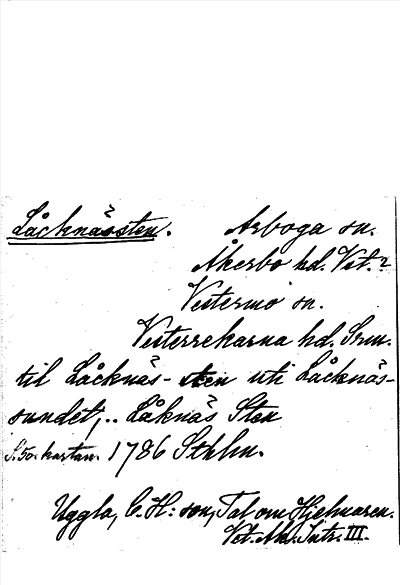 Låcknässten. Arboga sn.
Åkerbo hd. Vstm.?
Vestermo sn.
Vesterrekarna hd. Srm.
til Låcknäs-sten uti Låcknäs-
sundet; .. Låknäs Sten
S. 50. kartan. 1786 Sthlm.
Uggla, C. H:son, Tal om Hjelmaren.
Vet. Ak. Intr. III.